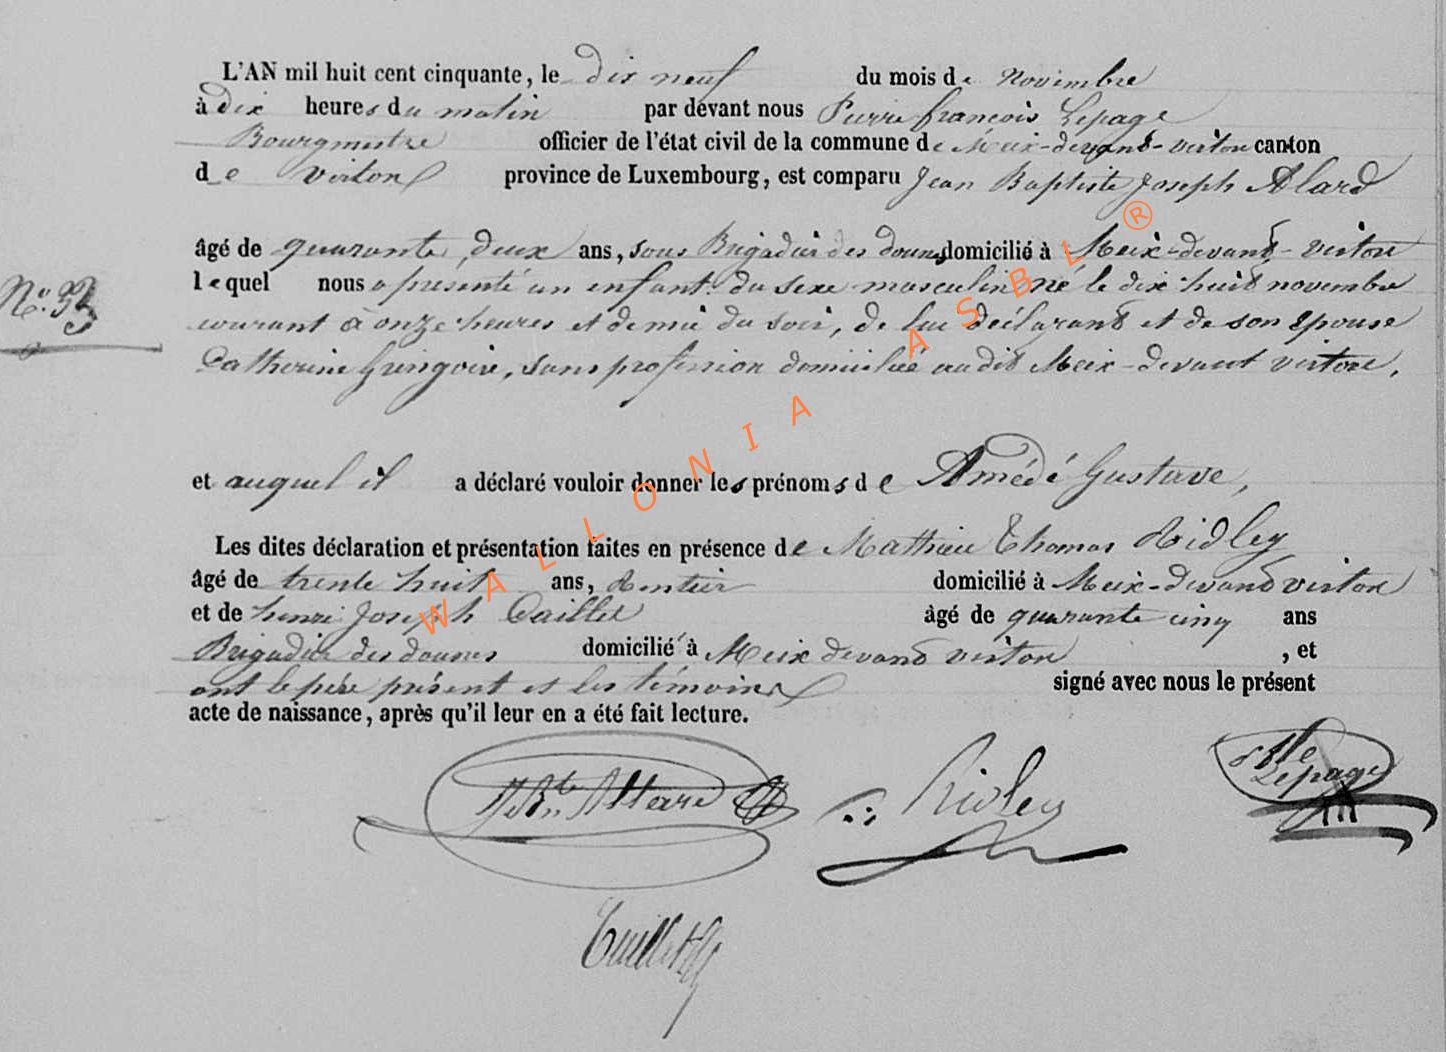 L'AN mil huit cent cinquante, le dix neuf du mois de Novembre
à dix heures du matin par devant nous Pierre françois Lepage
Bourgmestre officier de l'état civil de la commune de Meix-devant-virton canton
de virton province de Luxembourg, est comparu Jean Baptiste Joseph Alard
âgé de quarante deux ans, sous Brigadier des douanes domicilié à Meix-devant-virton
lequel nous a présenté un enfant du sexe masculin né le dix huit novembre
N° 33
courant à onze heures et demie du soir, de lui déclarant et de son épouse
Catherine Gringoire, sans profession domiciliée audit Meix-devant virton,
et auquel il a déclaré vouloir donner les prénoms de Amédé Gustave,
Les dites déclaration et présentation faites en présence de Mathieu Thomas Ridley
âgé de trente huit ans, Rentier domicilié à Meix-devant virton
et de henri Joseph Caillet âgé de quarante cinq ans
Brigadier des douanes domicilié à Meix devant virton , et
ont le père présent et les témoins signé avec nous le présent
acte de naissance, après qu'il leur en a été fait lecture.
Ridley
Lepage
WALLONIA ASBL ®